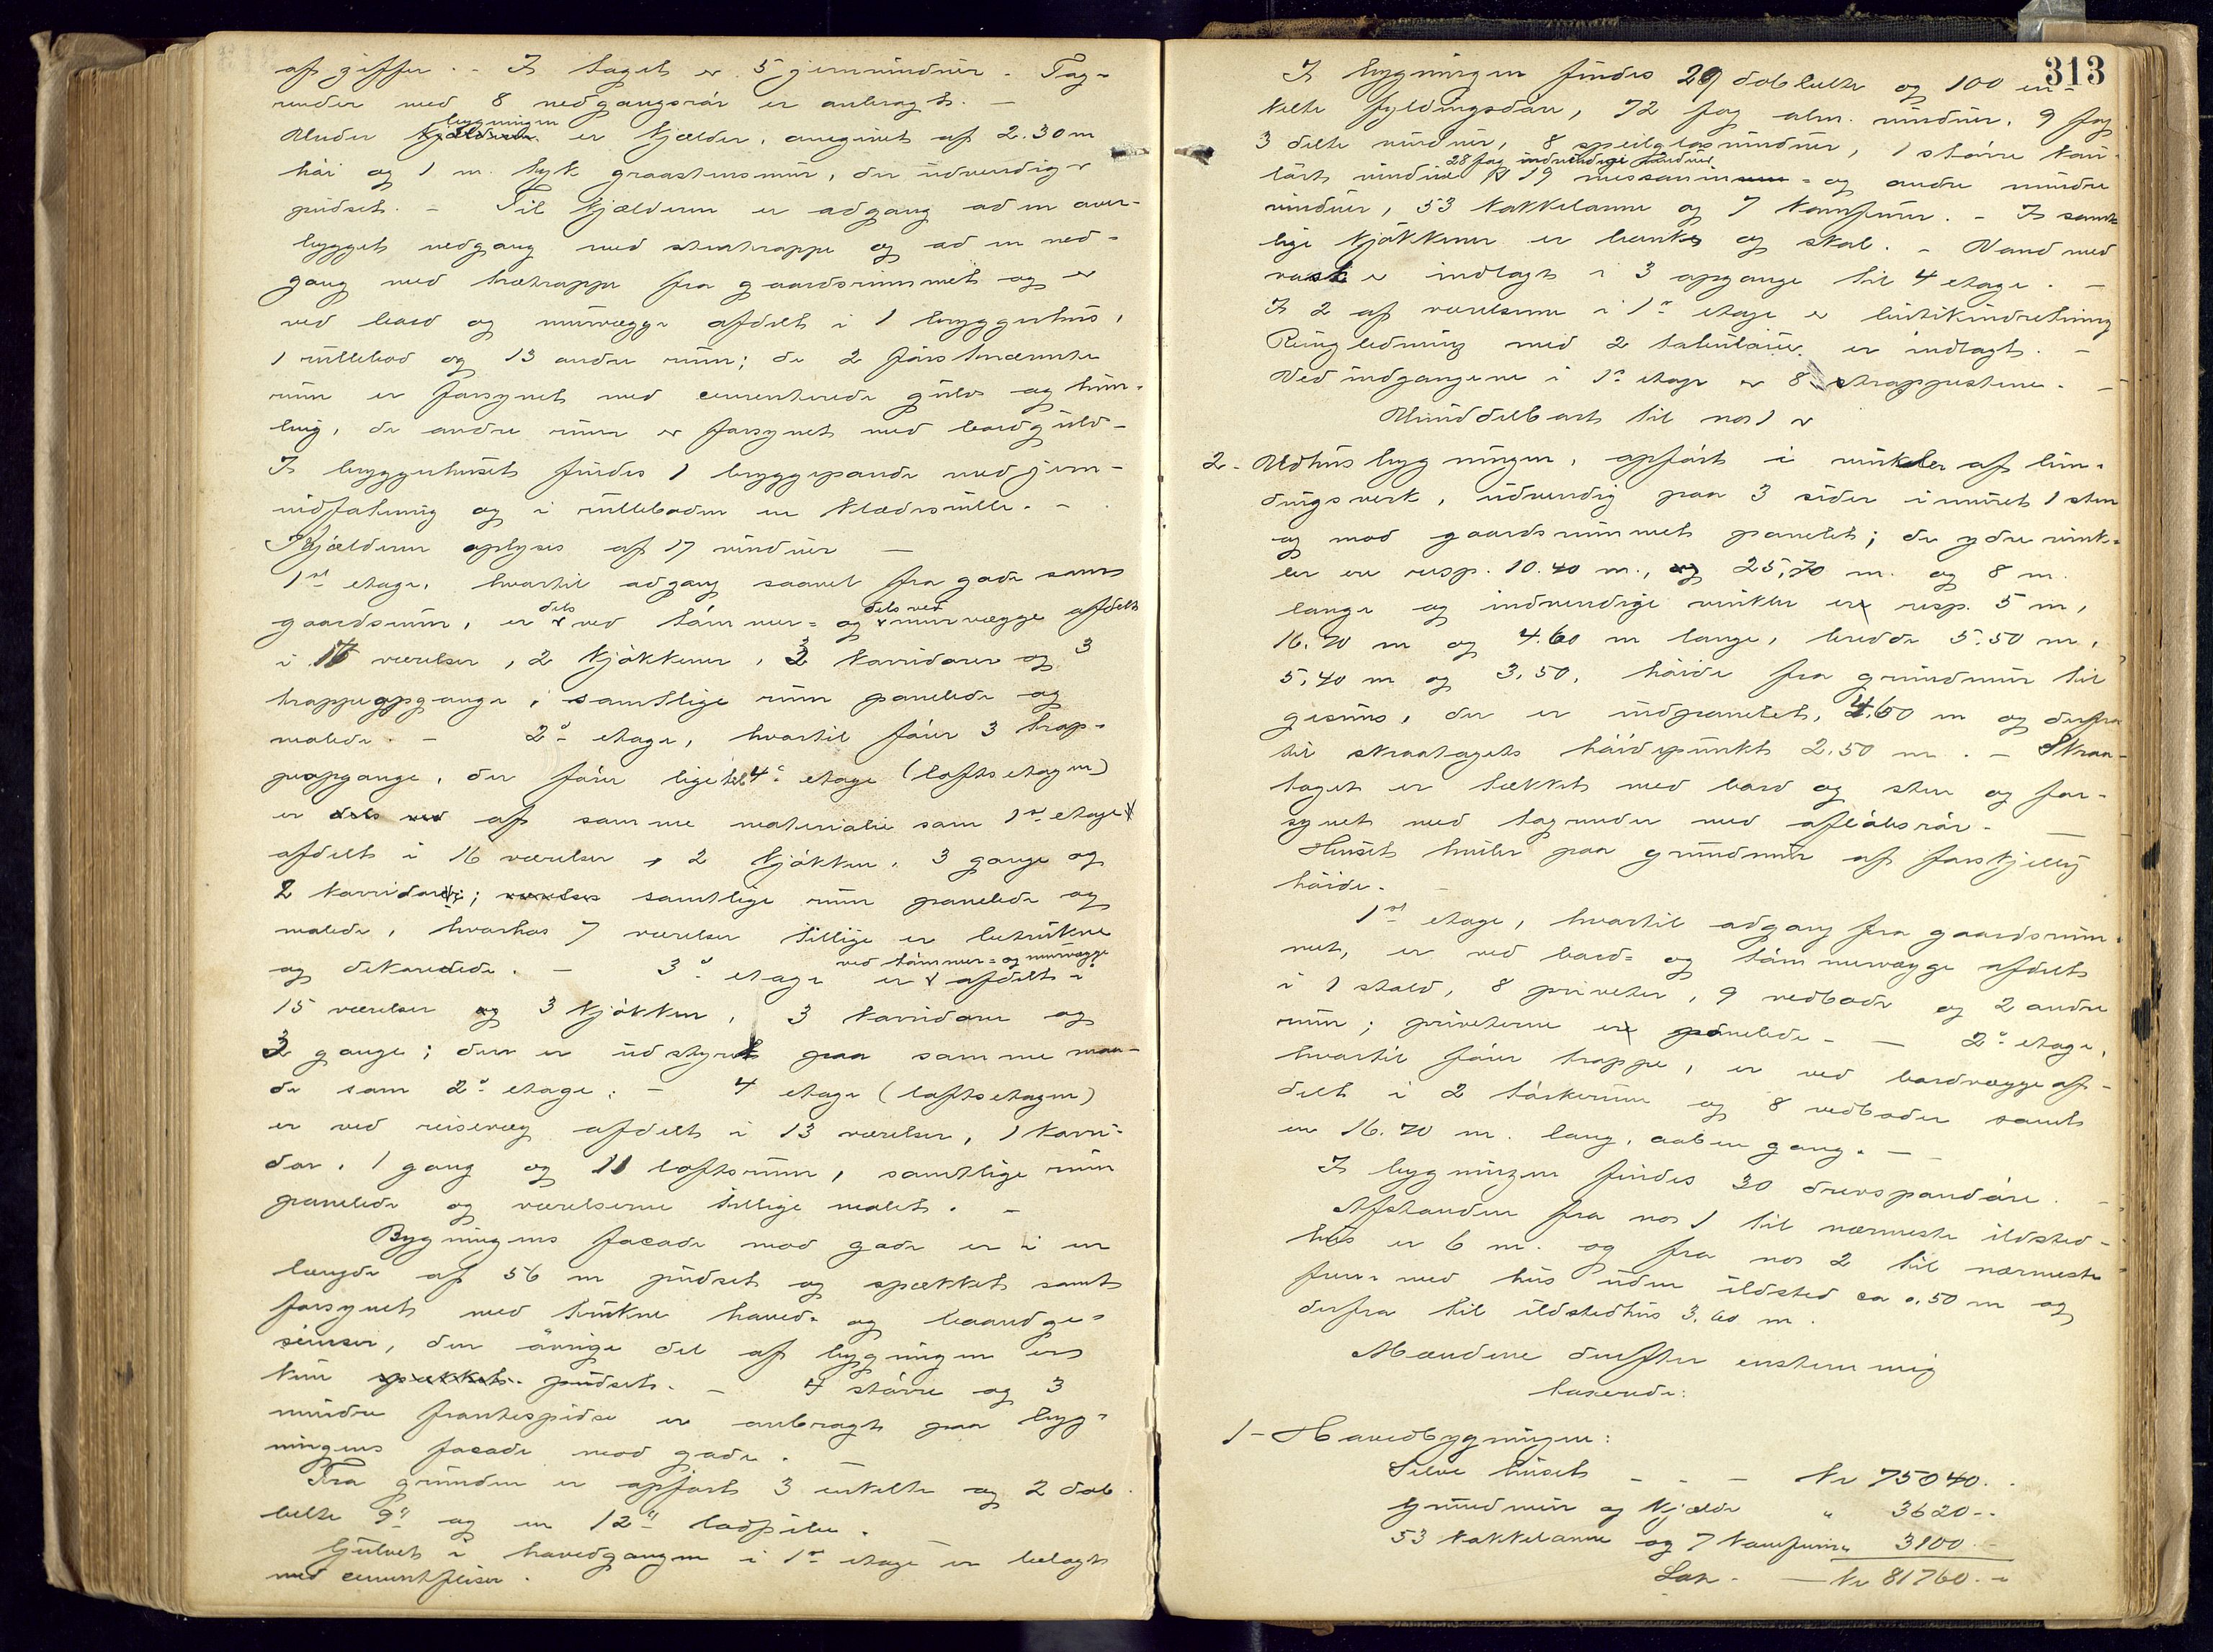 af giffer. - I taget er 5 jernvinduer. Tag-
render med 8 nedgangsrør er anbragt. -
bygningen
Under kjælderen er kjælder, omgivet af 2.30 m
høi og 1 m. tyk graastensmur, der udvendig er
pudset. - Til kjælderen er adgang ad en over-
bygget nedgang med stentrappe og ad en ned-
gang med trætrappe fra gaardsrummet og er
ved bord og murvægge afdelt i 1 bryggerhus,
1 rullebod og 13 andre rum; de 2 førstnævnte
rum er forsynet med cementerede gulv og him-
ling, de andre rum er forsynet med bordgulv-
I bryggerhuset findes 1 bryggepande med jern-
indfatning og i rulleboden en klædesrulle. -
Kjælderen oplyses af 17 vinduer -
1ste etage, hvortil adgang saavel fra gade som
dels dels ved
gaardsrum, er ved tømmer- og murvægge afdelt
i 17 værelser, 2 kjøkkener, 3 korridorer og 3
trappeopgange, samtlige rum panelede og
malede. - 2den etage, hvortil fører 3 trap-
peopgange, der fører lige til 4de etage (loftsetagen)
er dels ved af samme materialie som 1ste etage
afdelt i 16 værelser, 2 kjøkken, 3 gange og
2 korridorer; værelser samtlige rum panelede og
malede, hvorhos 7 værelser tillige er betrukne
ved tømmer- og murvægge
og dekorerede. - 3die etage er afdelt i
15 værelser og 3 kjøkken, 3 korridorer og
3 gange; den er udstyret paa samme maa-
de som 2den etage. - 4 etage (loftsetagen)
er ved reisværk afdelt i 13 værelser, 1 korri-
dor, 1 gang og 11 loftsrum, samtlige rum
panelede og værelserne tillige malet. -
Bygningens facade mod gade er i en
længde af 56 m pudset og spækket samt
forsynet med trukne hoved- og baandge-
simser, den øvrige del af bygningen er
kun spækket. pudset. - 4 større og 3
mindre frontespidse er anbragt paa byg-
ningens facade mod gade.
Fra grunden er opført 3 enkelte og 2 dob-
belte 9" og en 12" lodpibe.
Gulvet i hovedgangen i 1ste etage er belagt
med cementfliser.
313
I bygningen findes 29 dobbelte og 100 en-
kelte fyldingsdøre, 72 fag alm. vinduer, 9 fag
3 delte vinduer, 8 speilglasvinduer, 1 større kou-
28 fag indvendige vinduer
lørt vindue, 19 messanin- og andre mindre
vinduer, 53 kakkelovne og 7 komfurer. - I samt-
lige kjøkkener er bænk og skab. - Vand med
vask er indlagt i 3 opgange til 4 etage. -
I 2 af værelserne i 1ste etage er butikindretning
Ringledning med 2 tabulaier er indlagt. -
Ved indgangene i 1ste etage er 8 trappestene. -
Umiddelbart til no 1 er
2- Udhusbygningen, opført i vinkler af bin-
dingsverk, udvendig paa 3 sider inmuret 1 sten
og mod gaardsrummet panelet; de ydre vink-
ler er resp. 10.40 m., og 25,70 m. og 8 m.
lange og indvendige vinkler er resp. 5 m,
16.70 m og 4.60 m lange, bredde 5.50 m,
5,40 m og 3,50, høide fra grundmur til
gesims, der er indpanelet, 4.50 m og derfra
til skraatagets høidepunkt 2.50 m. - Skraa-
taget er tækket med bord og sten og for-
synet med tagrender med afløbsrør. -
Huset hviler paa grundmur af forskjellig
høide. -
1ste etage, hvortil adgang fra gaardsrum-
met, er ved bord- og tømmervægge afdelt
i 1 stald, 8 priveter, 9 vedboder og 2 andre
rum; priveterne er panelede. - 2den etage,
hvortil fører trappe, er ved bordvægge af-
delt i 2 tørkerum og 8 vedboder samt
en 16.70 m. lang, aaben gang. -
I bygningen findes 30 drevspanddøre. -
Afstanden fra no 1 til nærmeste ildsted-
hus er 6 m. og fra no 2 til nærmeste
hus uden ildsted ca 0.50 m og
derfra til ildstedhus 3.60 m.
Mændene derefter enstemmig
taxerede:
1- Hovedbygningen:
Selve huset - - - Kr 75040. -
Grundmur og kjelder " 3620 - -
53 kakkelovne og 7 komfurer " 3100. -
Lar - - Kr 81760. -